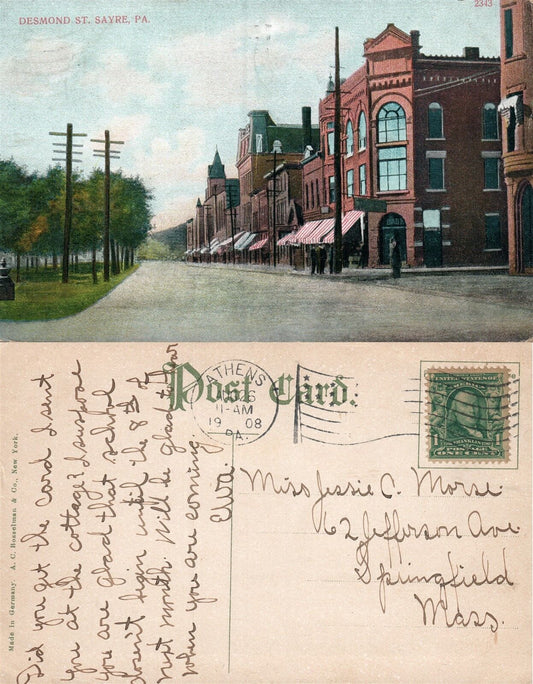 DESMOND ST. SAYRE, PA.
2343
Post Card.
ATHENS
11-AM
1908
PA.
UNITED STATES OF AMERICA
FRANKLIN
1 POSTAGE 1
ONE CENT
Made in Germany A. C. Bosselman & Co., New York.
Did you get the card I sent
you at the cottage? I suppose
you are glad that school
doesn't begin until the 8th of
next month. Will be glad to hear
when you are coming.
Elva.
Miss Jessie C. Morse.
62 Jefferson Ave.
Springfield
Mass.